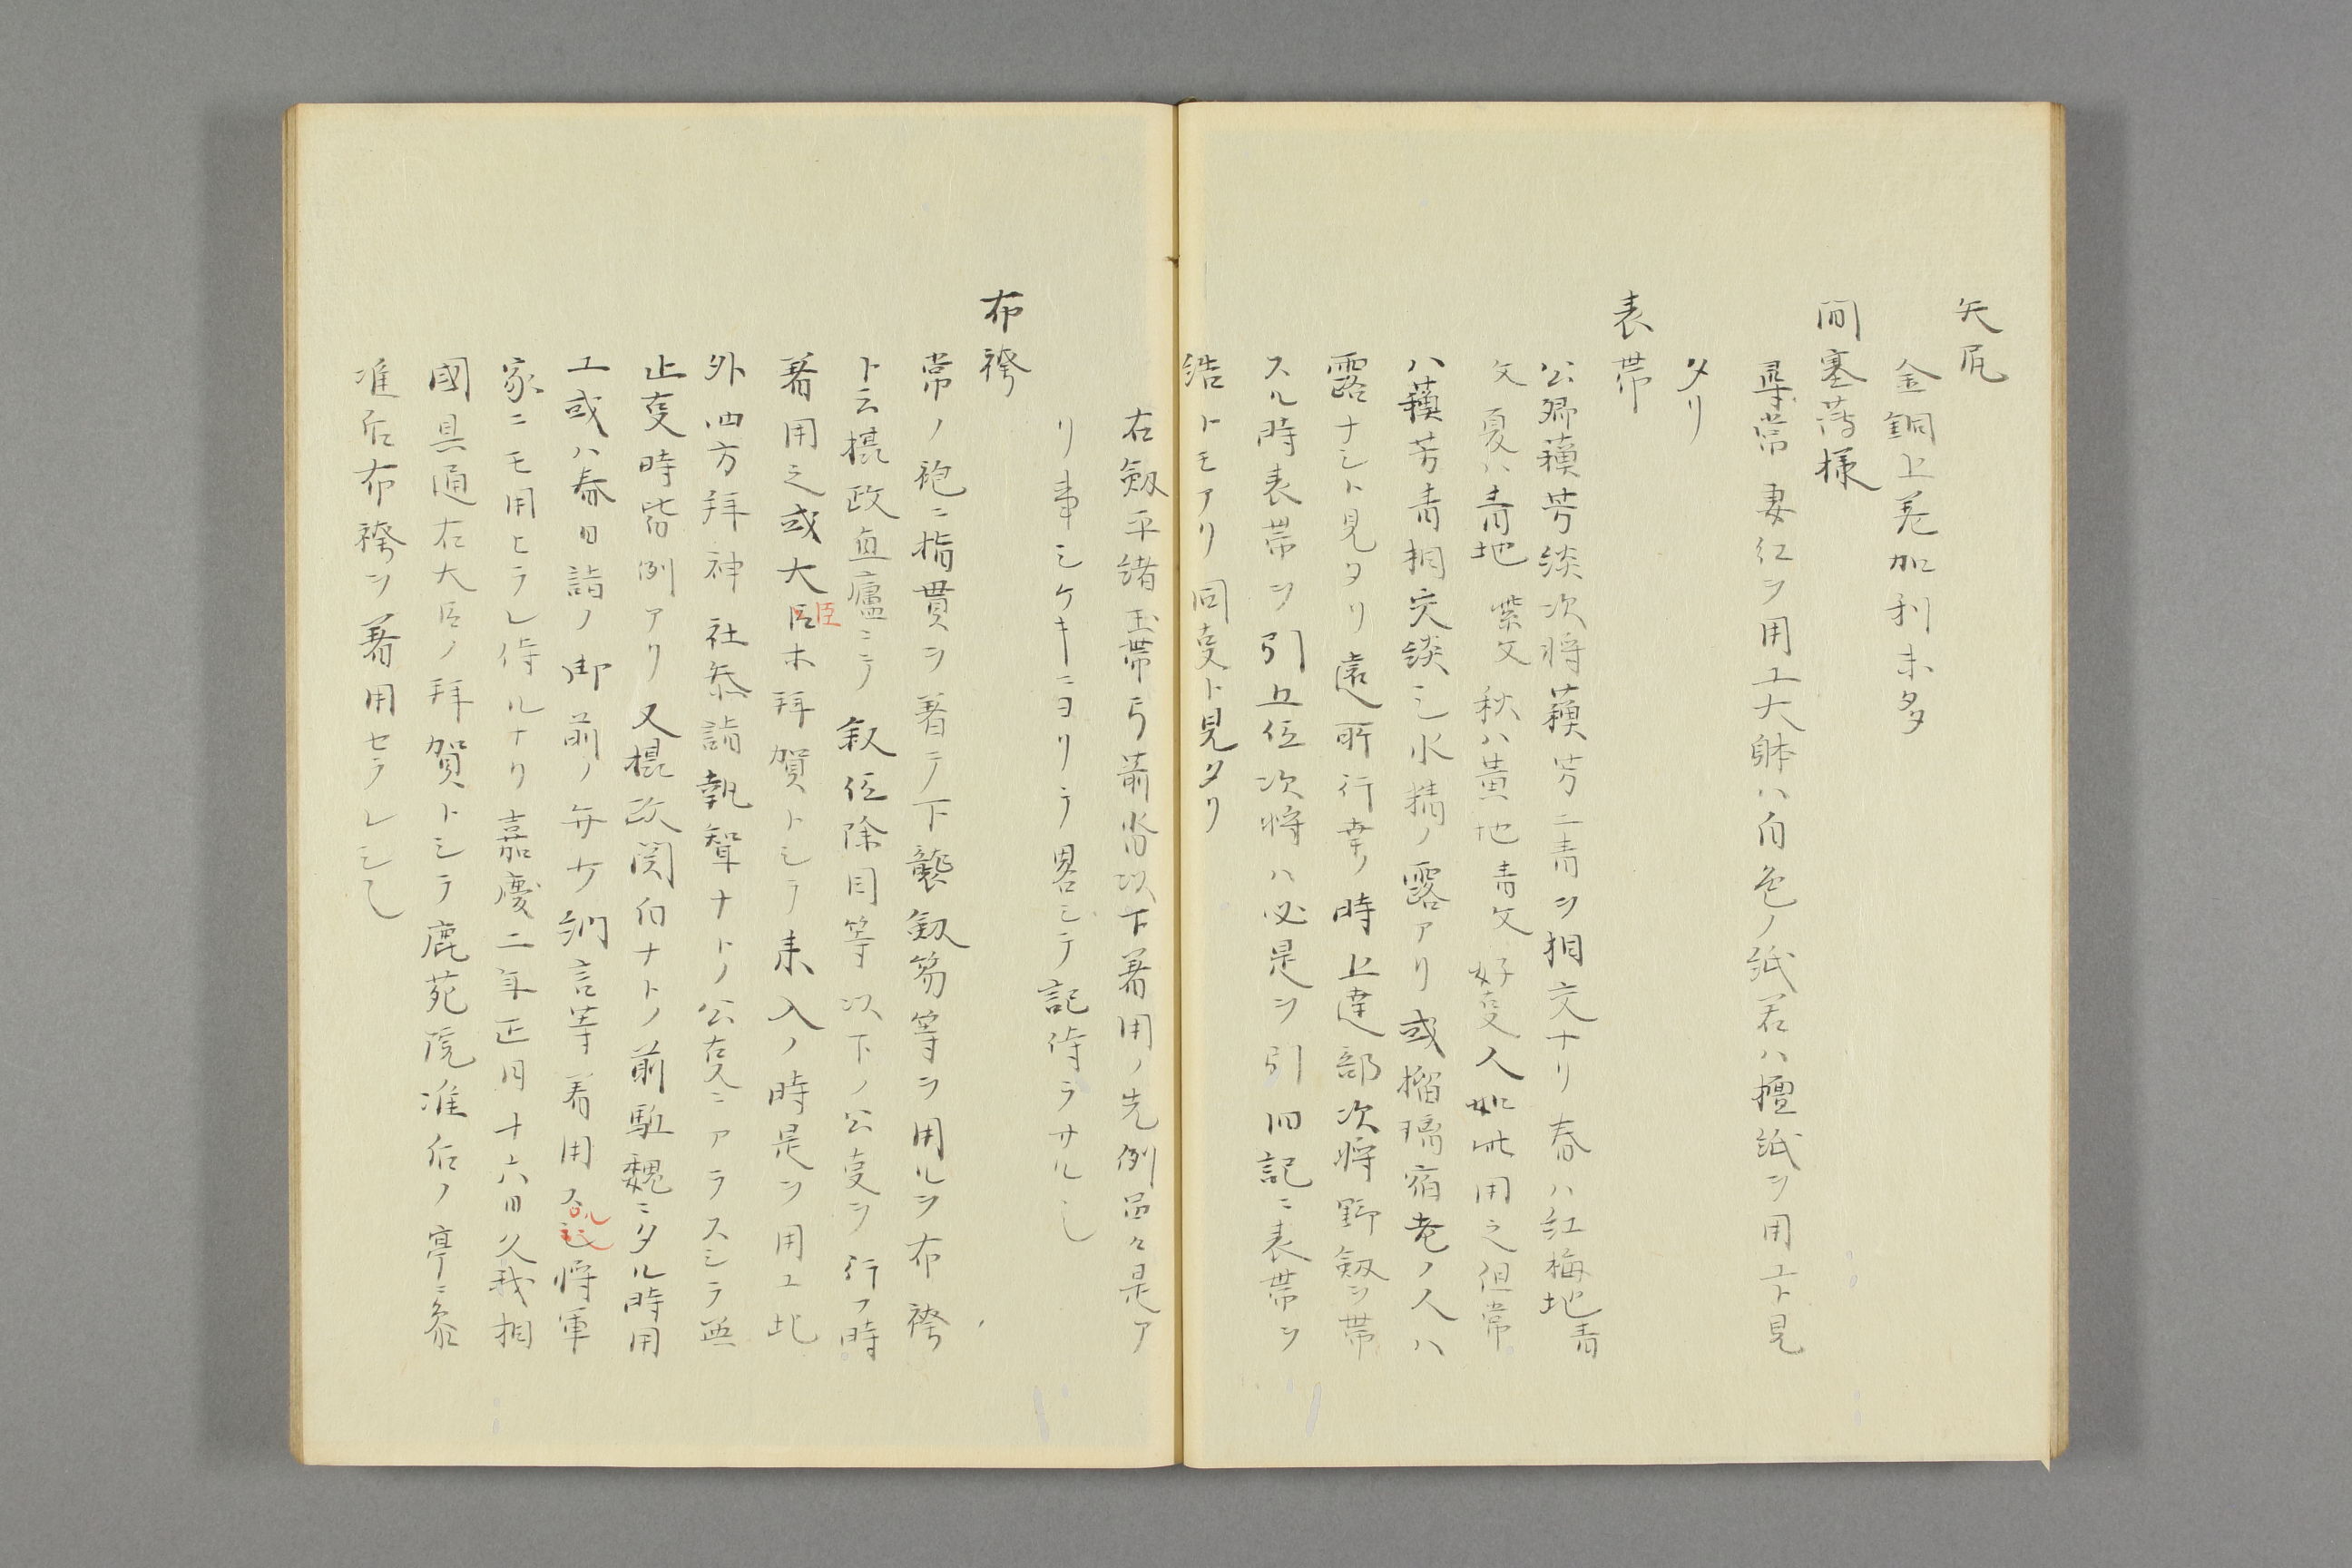 矢尻
金銅上差加利未多
間塞薄様
尋常妻紅ヲ用エ大躰ハ白色ノ紙若ハ檀紙ヲ用エト見
タリ
表帯
公卿蘓芳緂次将蘓芳ニ青ヲ相交ナリ春ハ紅梅地青
文夏ハ青地紫文秋ハ黄地青文好事人如此用之但常
ハ蘓芳青相交緂シ水精ノ露アリ或摺瑀宿老ノ人ハ
露ナシト見タリ遠所行幸ノ時上達部次将野劔ヲ帯
スル時表帯ヲ引五位次将ハ必是ヲ引旧記ニ表帯ヲ
結トモアリ同事ト見タリ
右劔平緒玉帯弓箭沓以下著用ノ先例區々是ア
リ事シケキニヨリテ畧シテ記侍ラサル也
布袴
常ノ袍ニ指貫ヲ着テ下襲劔笏等ヲ用ルヲ布袴
ト云摂政直廬ニテ叙位除目等以下ノ公事ヲ行フ時
著用之或大臣臣ホ拜賀トシテ来入ノ時是ヲ用エ此
外四方拜神社参詣執聟ナトノ公事ニアラスシテ無
止事時皆例アリ又摂政関白ナトノ前駈魏ニタル時用
エ或ハ春日詣ノ御前ノ弁少納言等著用ス将軍
家ニモ用ヒラレ侍ルナリ嘉慶二年正月十六日久我相
國具通右大臣ノ拜賀トシテ鹿苑院准后ノ亭ニ参
准后布袴ヲ著用セラレシ也